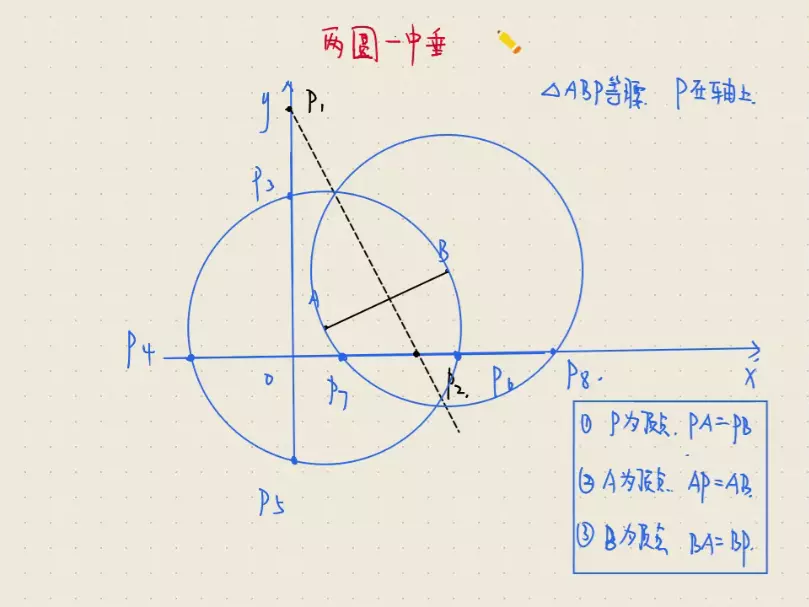 两圆一中垂
△ABP等腰 P在轴上
y
P1
P3
B
A
P4
O
P7
P2.
P6
P8.
x
P5
① P为顶点. PA=PB
② A为顶点. AP=AB.
③ B为顶点 BA=BP.